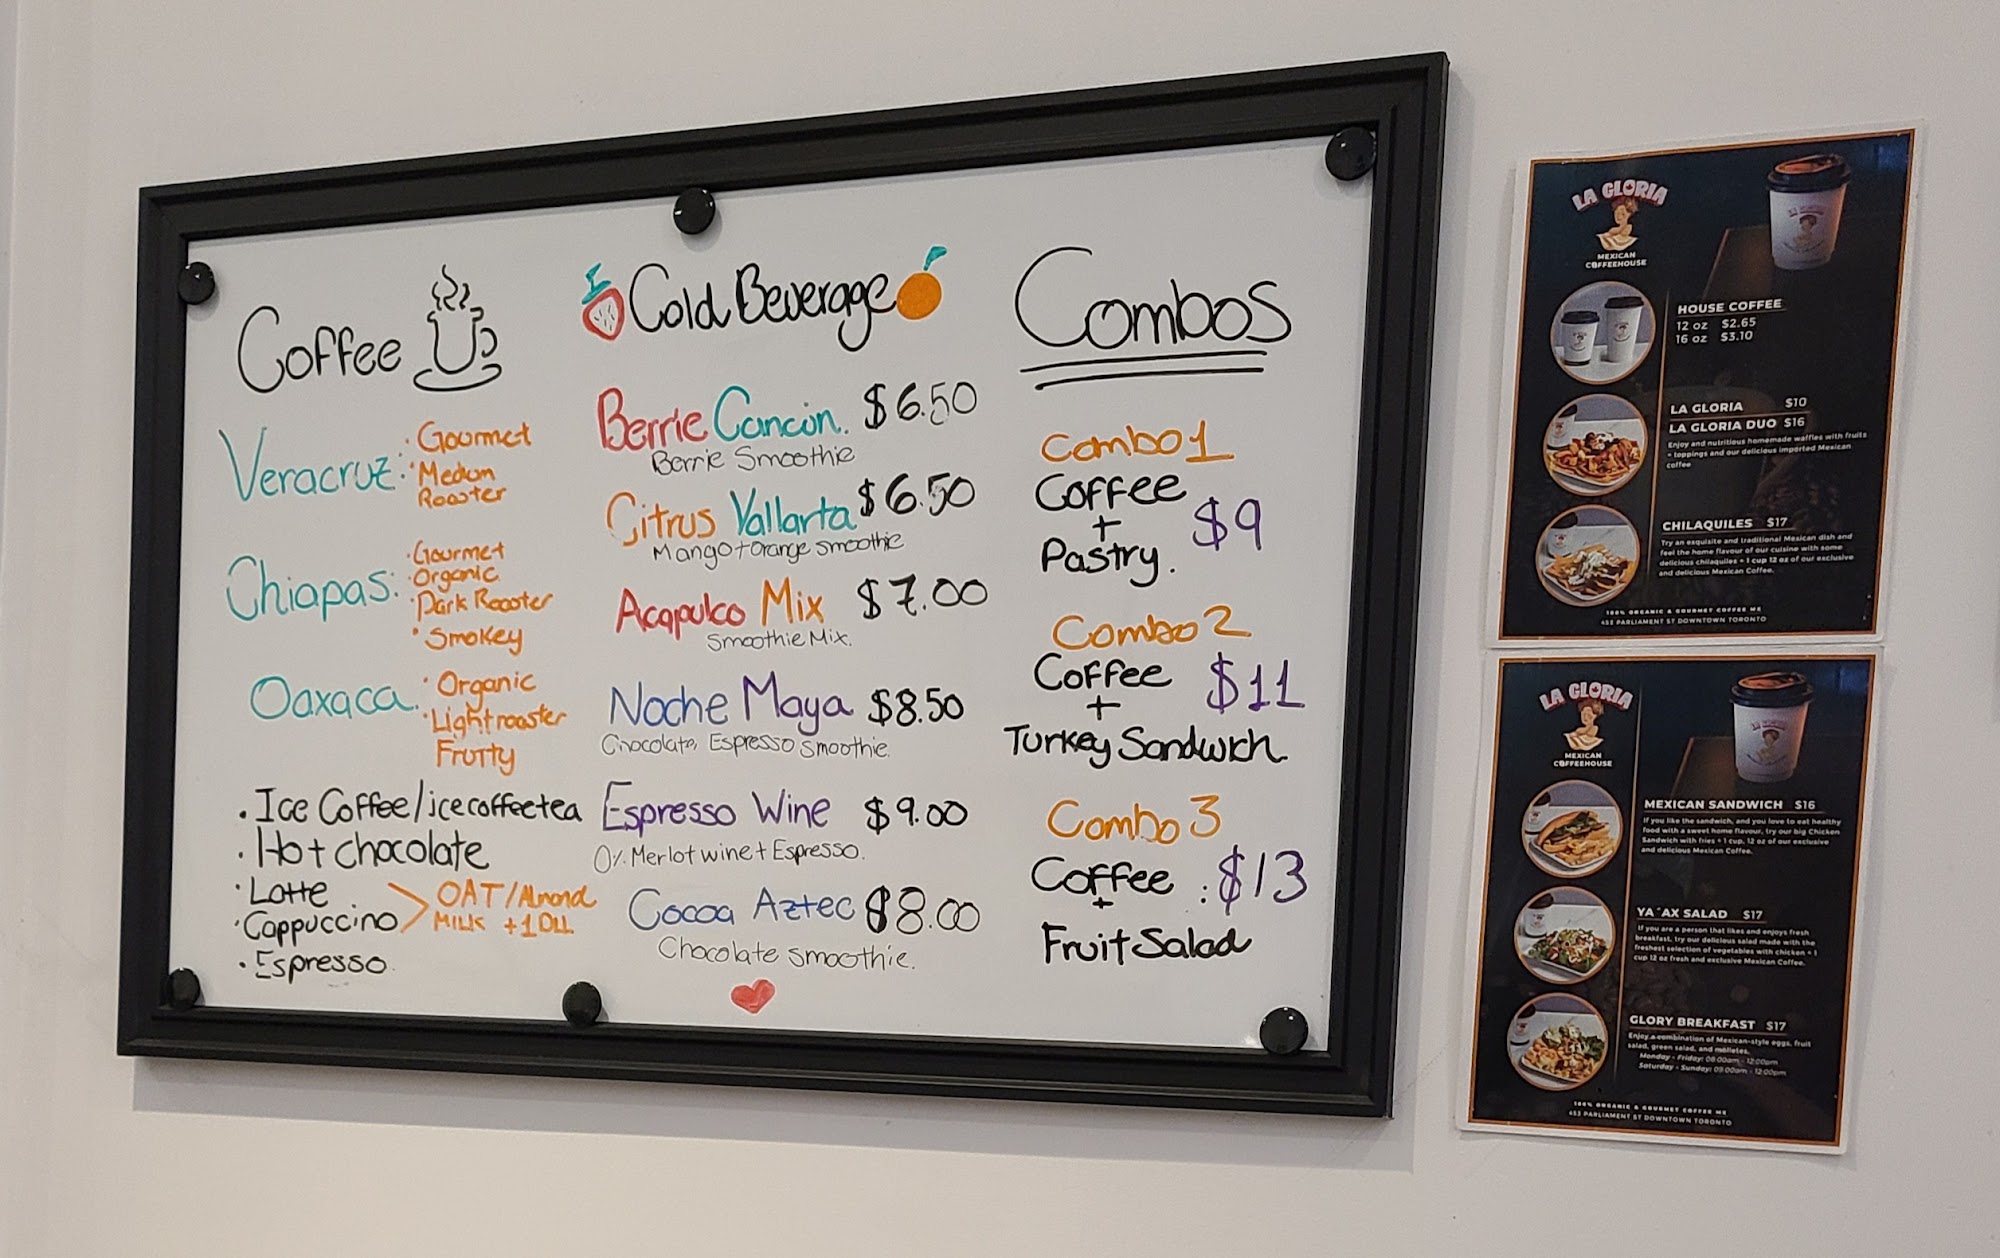 Coffee
Veracruz:
· Gourmet
· Medium
Roaster
Chiapas:
· Gourmet
· Organic
· Dark Roaster
· Smokey
Oaxaca.
· Organic
· Light roaster
Frutty
· Ice Coffee/ice coffee tea
· Hot chocolate
· Latte
· Cappuccino
· Espresso.
OAT/Almond
MILK +1 DLL
Cold Beverage
Berrie Cancún. $6.50
Berrie Smoothie
Citrus Vallarta $6.50
Mango+orange smoothie
Acapulco Mix $7.00
Smoothie Mix.
Noche Maya $8.50
Chocolate, Espresso Smoothie.
Espresso Wine $9.00
0% Merlot wine + Espresso.
Cocoa Aztec $8.00
Chocolate smoothie.
Combos
Combo 1
Coffee
+
Pastry.
$9
Combo 2
Coffee
+
Turkey Sandwich.
$11
Combo 3
Coffee
+
Fruit Salad
:$13
LA GLORIA
MEXICAN
COFFEEHOUSE
HOUSE COFFEE
12 oz $2.65
16 oz $3.10
LA GLORIA $10
LA GLORIA DUO $16
Enjoy and nutritious homemade waffles with fruits
+ toppings and our delicious imported Mexican
coffee
CHILAQUILES $17
Try an exquisite and traditional Mexican dish and
feel the home flavour of our cuisine with some
delicious chilaquiles + 1 cup 12 oz of our exclusive
and delicious Mexican Coffee.
100% ORGANIC & GOURMET COFFEE MX
453 PARLIAMENT ST DOWNTOWN TORONTO
LA GLORIA
MEXICAN
COFFEEHOUSE
MEXICAN SANDWICH $16
If you like the sandwich, and you love to eat healthy
food with a sweet home flavour, try our big Chicken
Sandwich with fries + 1 cup, 12 oz of our exclusive
and delicious Mexican Coffee.
YA´AX SALAD $17
If you are a person that likes and enjoys fresh
breakfast, try our delicious salad made with the
freshest selection of vegetables with chicken + 1
cup 12 oz fresh and exclusive Mexican Coffee.
GLORY BREAKFAST $17
Enjoy a combination of Mexican-style eggs, fruit
salad, green salad, and molletes.
Monday - Friday: 08:00am - 12:00pm
Saturday - Sunday: 09:00am - 12:00pm
100% ORGANIC & GOURMET COFFEE MX
453 PARLIAMENT ST DOWNTOWN TORONTO